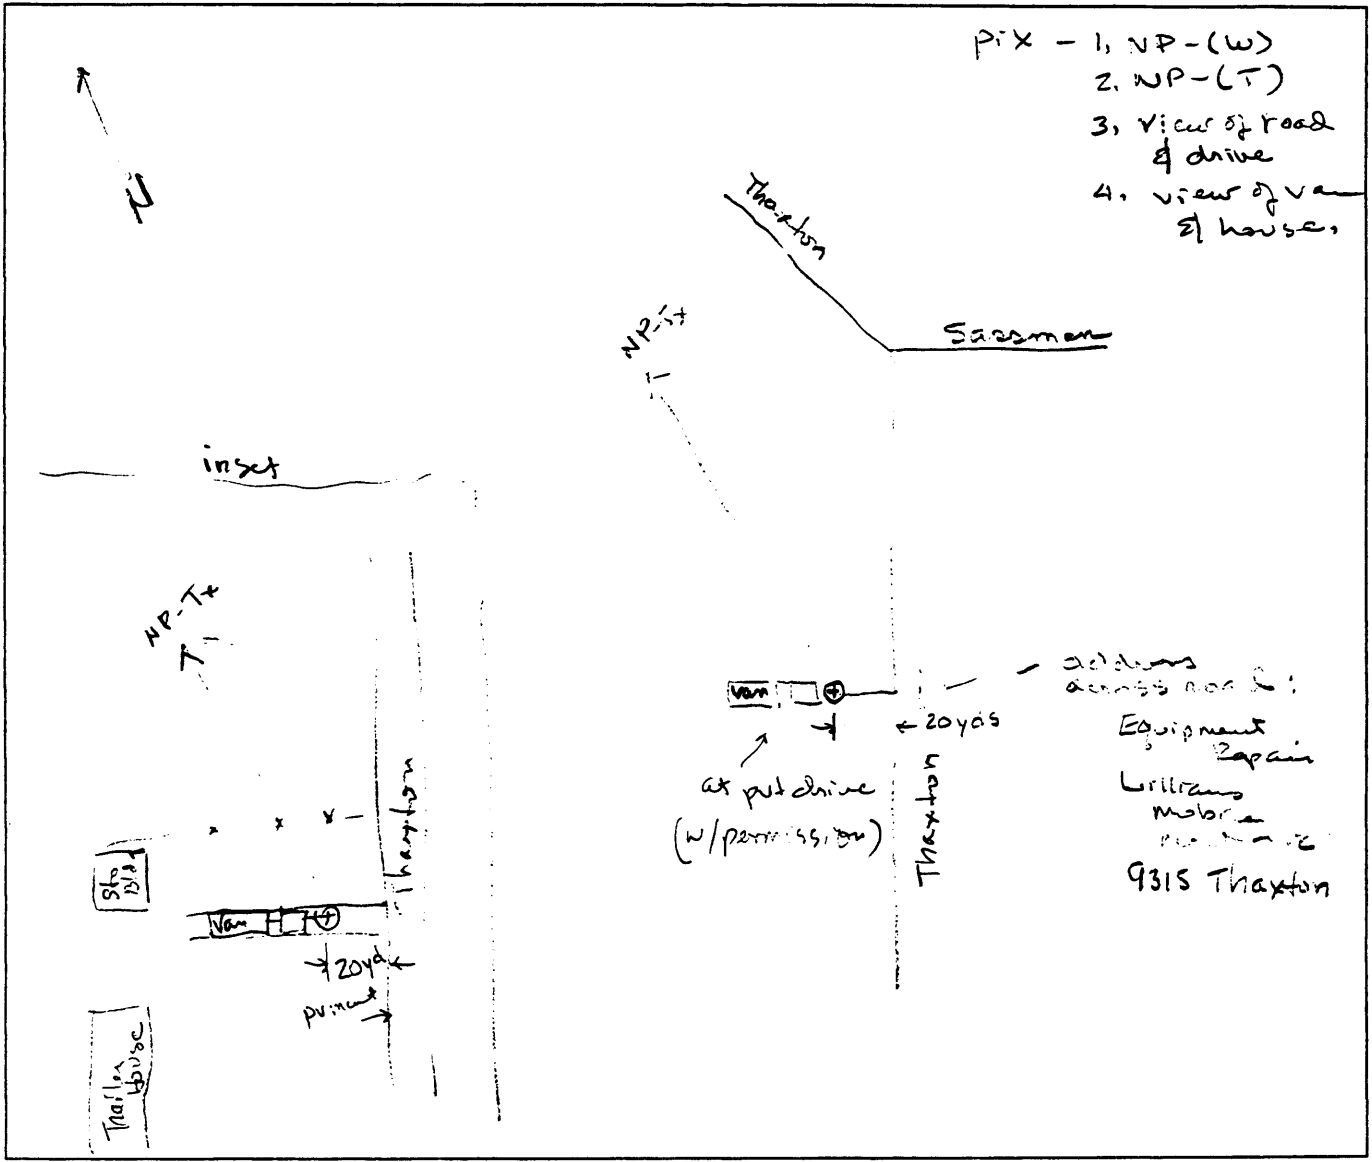 pix - 1, NP-(W)
2, NP-(T)
3, view of road
& drive
4, view of van
& house.
N
Thaxton
Sassman
NP-St
inset
NP-T+
Thaxton
Sto
Bld
van
20yd
Trailer
House
van
20yds
at pvt drive
(w/permission)
Thaxton
address
across road:
Equipment
Repair
Williams
Mobile
9315 Thaxton